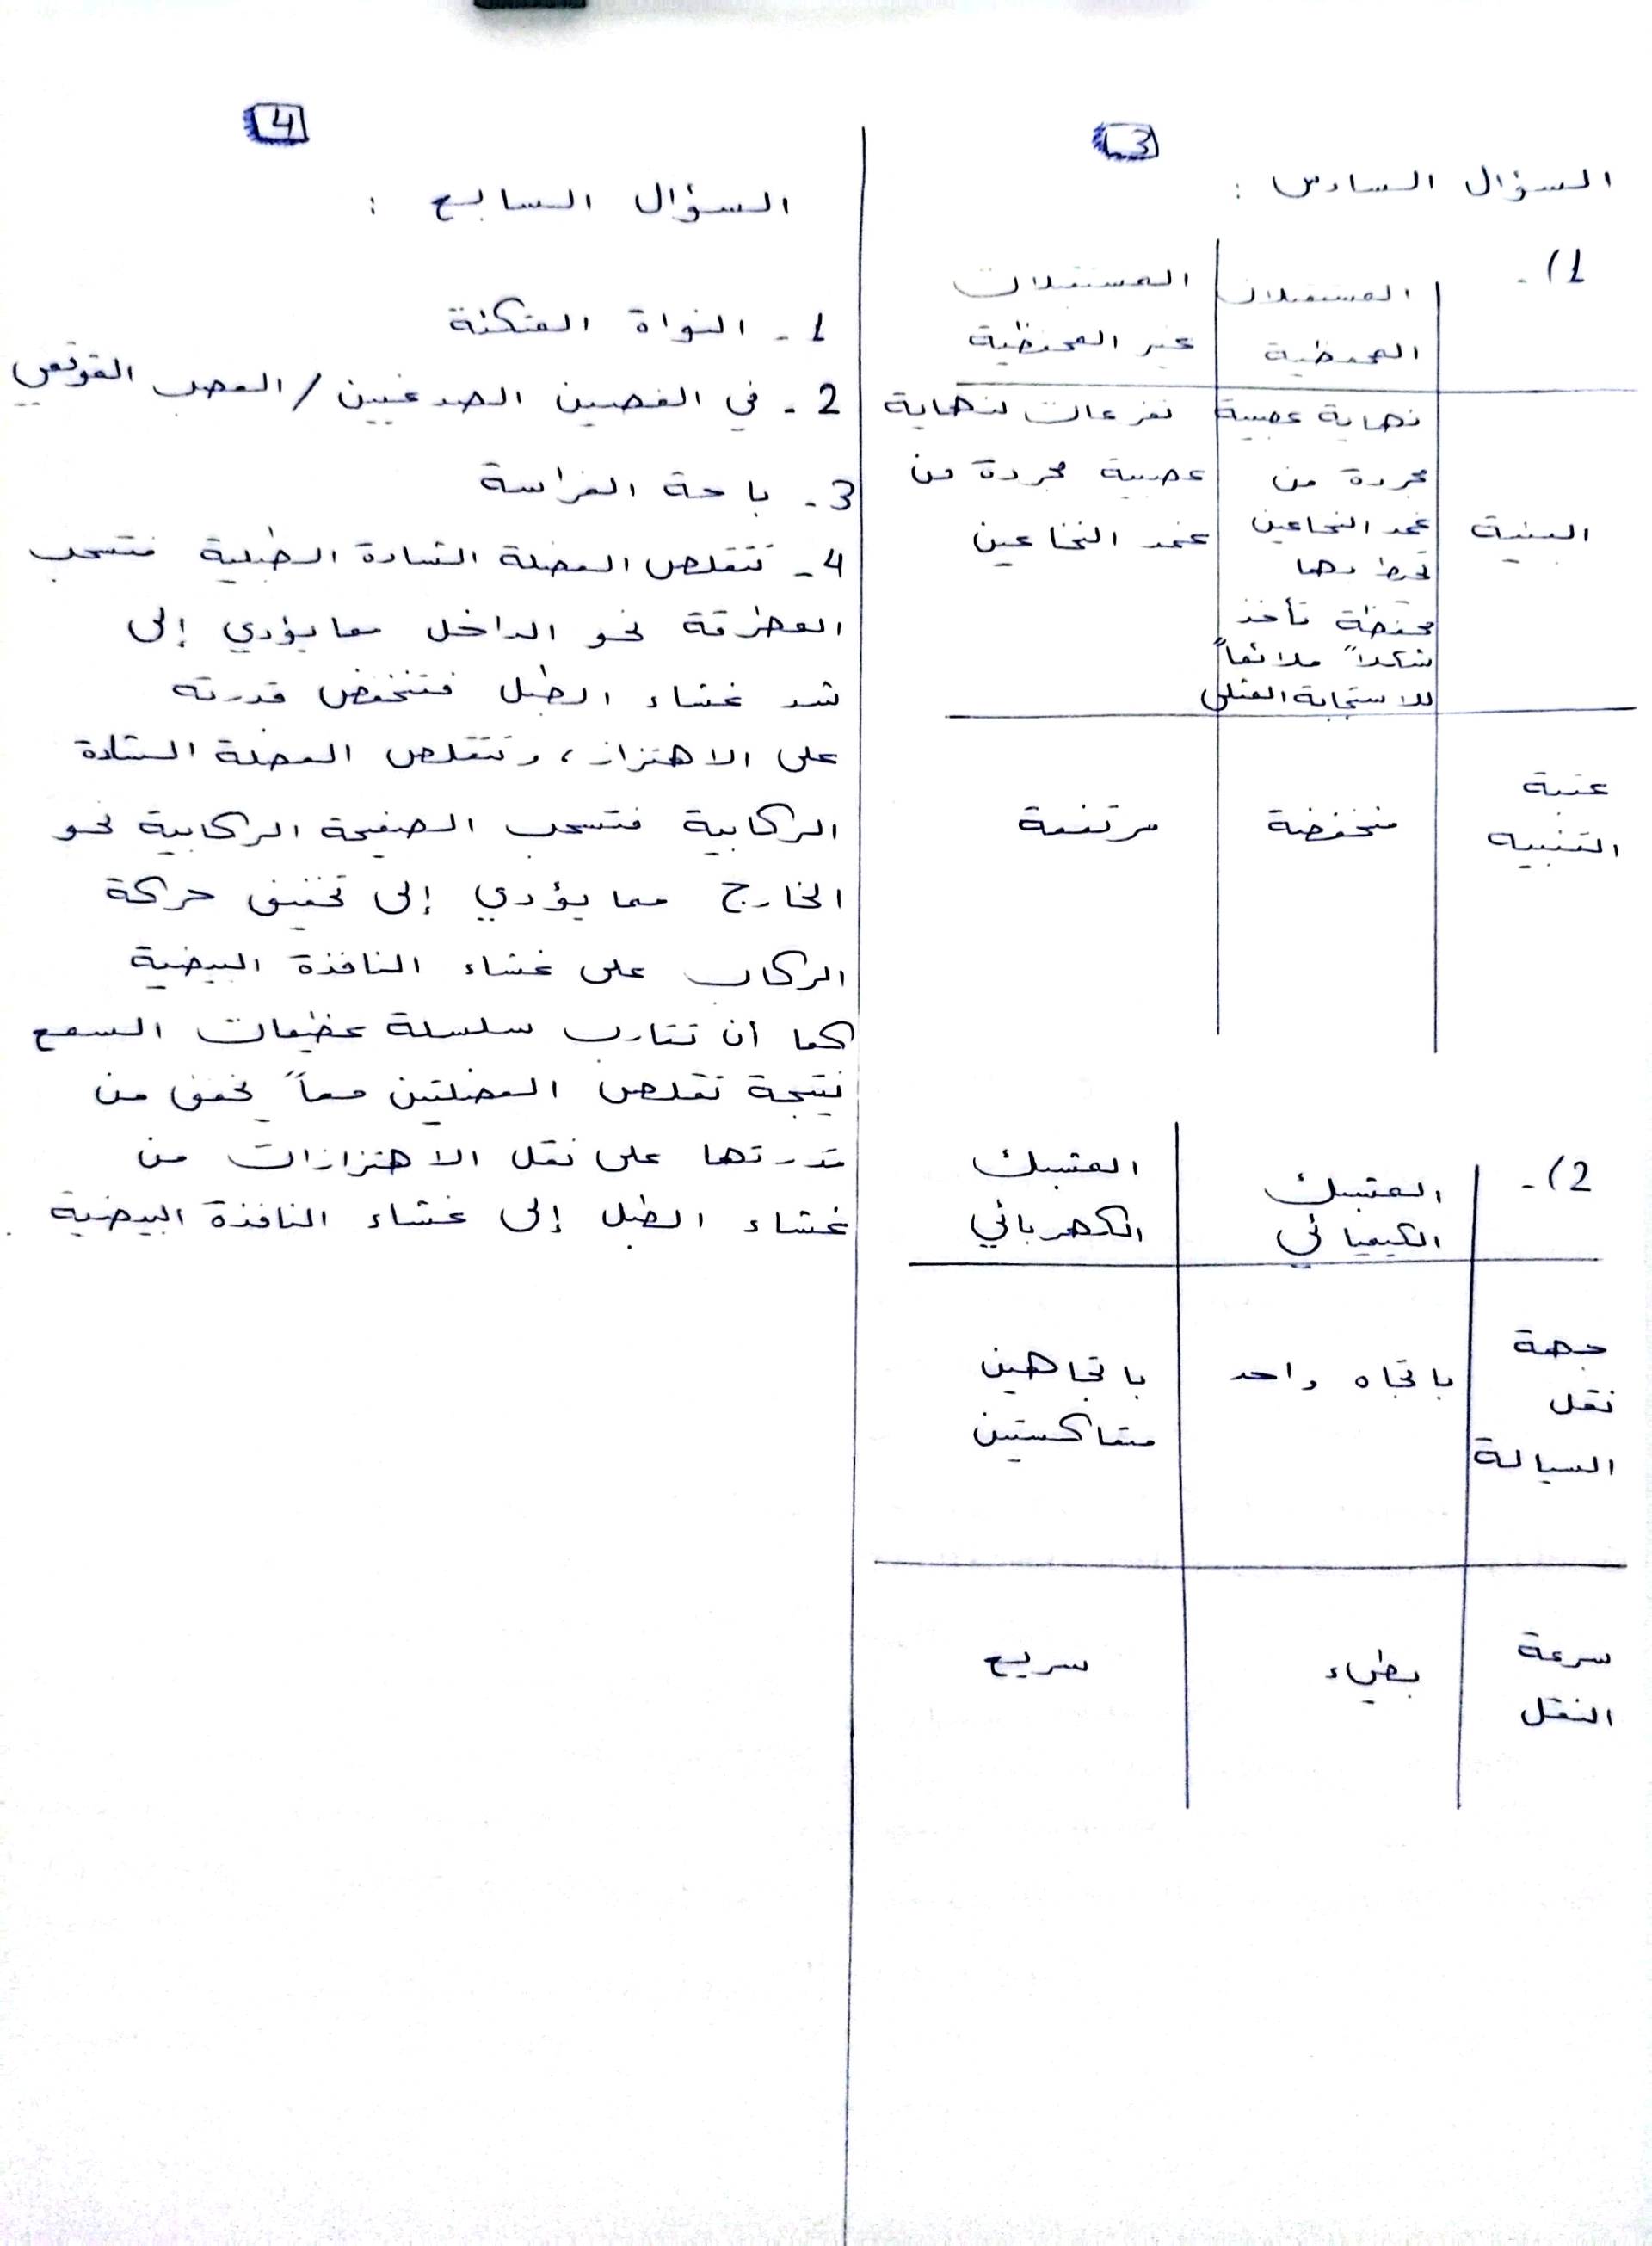 3
السؤال السادس :
1) -
المستقبلات | المستقبلات
المحفظية | غير المحفظية
البنية | نهاية عصبية | تفرعات لنهاية
مجردة من | عصبية مجردة من
غمد النخاعين | غمد النخاعين
تحيط بها
محفظة تأخذ
شكلاً ملائماً
للاستجابة المثلى
عتبة التنبيه | منخفضة | مرتفعة
2) -
المشبك | المشبك
الكيميائي | الكهربائي
جهة
نقل | باتجاه واحد | باتجاهين
السيالة | متعاكستين
سرعة | بطيء | سريع
النقل
4
السؤال السابع :
1 - النواة المتكئة
2 - في الفصين الصدغيين / العصب القوقعي
3 - باحة الفراسة
4 - تتقلص العضلة الشادة الطبلية فتسحب
المطرقة نحو الداخل مما يؤدي إلى
شد غشاء الطبل فتنخفض قدرته
على الاهتزاز ، وتتقلص العضلة الشادة
الركابية فتسحب الصفيحة الركابية نحو
الخارج مما يؤدي إلى تخفيف حركة
الركاب على غشاء النافذة البيضية
كما أن تقارب سلسلة عظيمات السمع
نتيجة تقلص العضلتين معاً يخفف من
قدرتها على نقل الاهتزازات من
غشاء الطبل إلى غشاء النافذة البيضية .